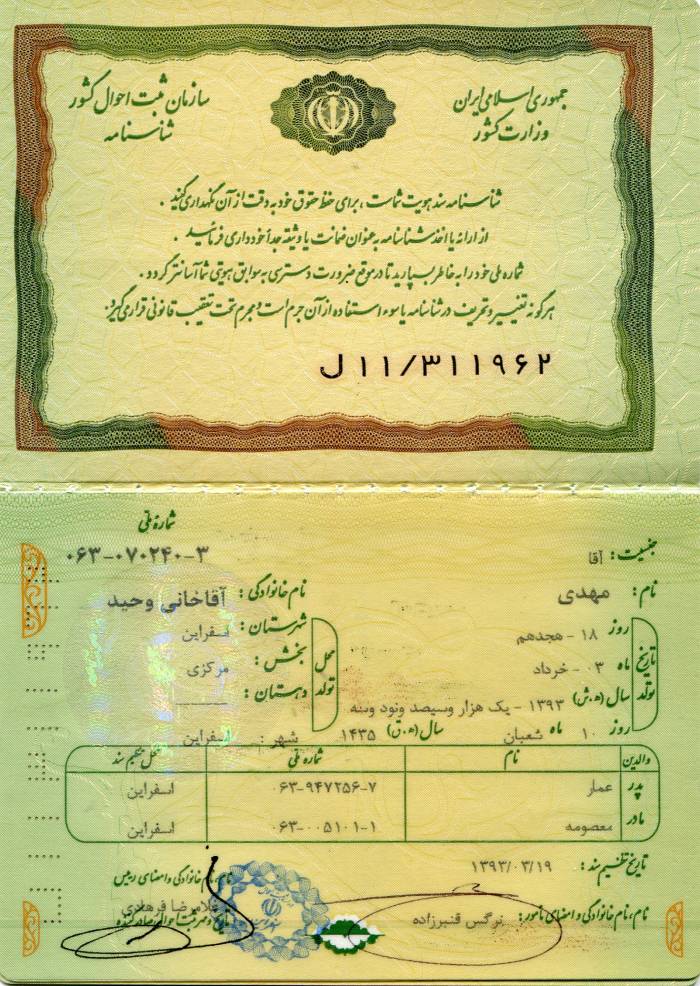 جمهوری اسلامی ایران
وزارت کشور
سازمان ثبت احوال کشور
شناسنامه
شناسنامه سند هویت شماست ، برای حفظ حقوق خود به دقت از آن نگهداری کنید .
از ارائه یا اخذ شناسنامه به عنوان ضمانت یا وثیقه جداً خودداری فرمائید .
شماره ملی خود را به خاطر بسپارید تا در موقع ضرورت دسترسی به سوابق هویتی شما آسانتر گردد .
هرگونه تغییر و تحریف در شناسنامه یا سوء استفاده از آن جرم است و مجرم تحت تعقیب قانونی قرار می گیرد.
ل ۱۱/۳۱۱۹۶۲
شماره ملی
جنسیت : آقا ۰۶۳-۰۷۰۲۴۰-۳
نام : مهدی نام خانوادگی : آقاخانی وحید
تاریخ تولد روز ۱۸ - هجدهم محل تولد شهرستان : اسفراین
ماه ۰۳ - خرداد بخش : مرکزی
سال (ه.ش) ۱۳۹۳ - یک هزار و سیصد و نود و سه دهستان :
روز ۱۰ ماه شعبان سال (ه.ق) ۱۴۳۵ شهر : اسفراین
والدین نام شماره ملی محل تنظیم سند
پدر عمار ۰۶۳-۹۴۷۲۵۶-۷ اسفراین
مادر معصومه ۰۶۳-۰۰۵۱۰۱-۱ اسفراین
تاریخ تنظیم سند : ۱۳۹۳/۰۳/۱۹
نام، نام خانوادگی و امضای مأمور: نرگس قنبرزاده
نام، نام خانوادگی و امضای رییس
غلامرضا فرهادی